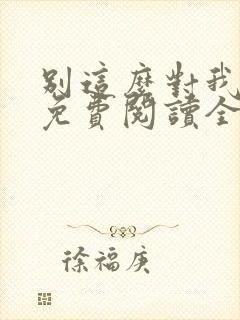 別這麼對我
免費閱讀全
徐福庚